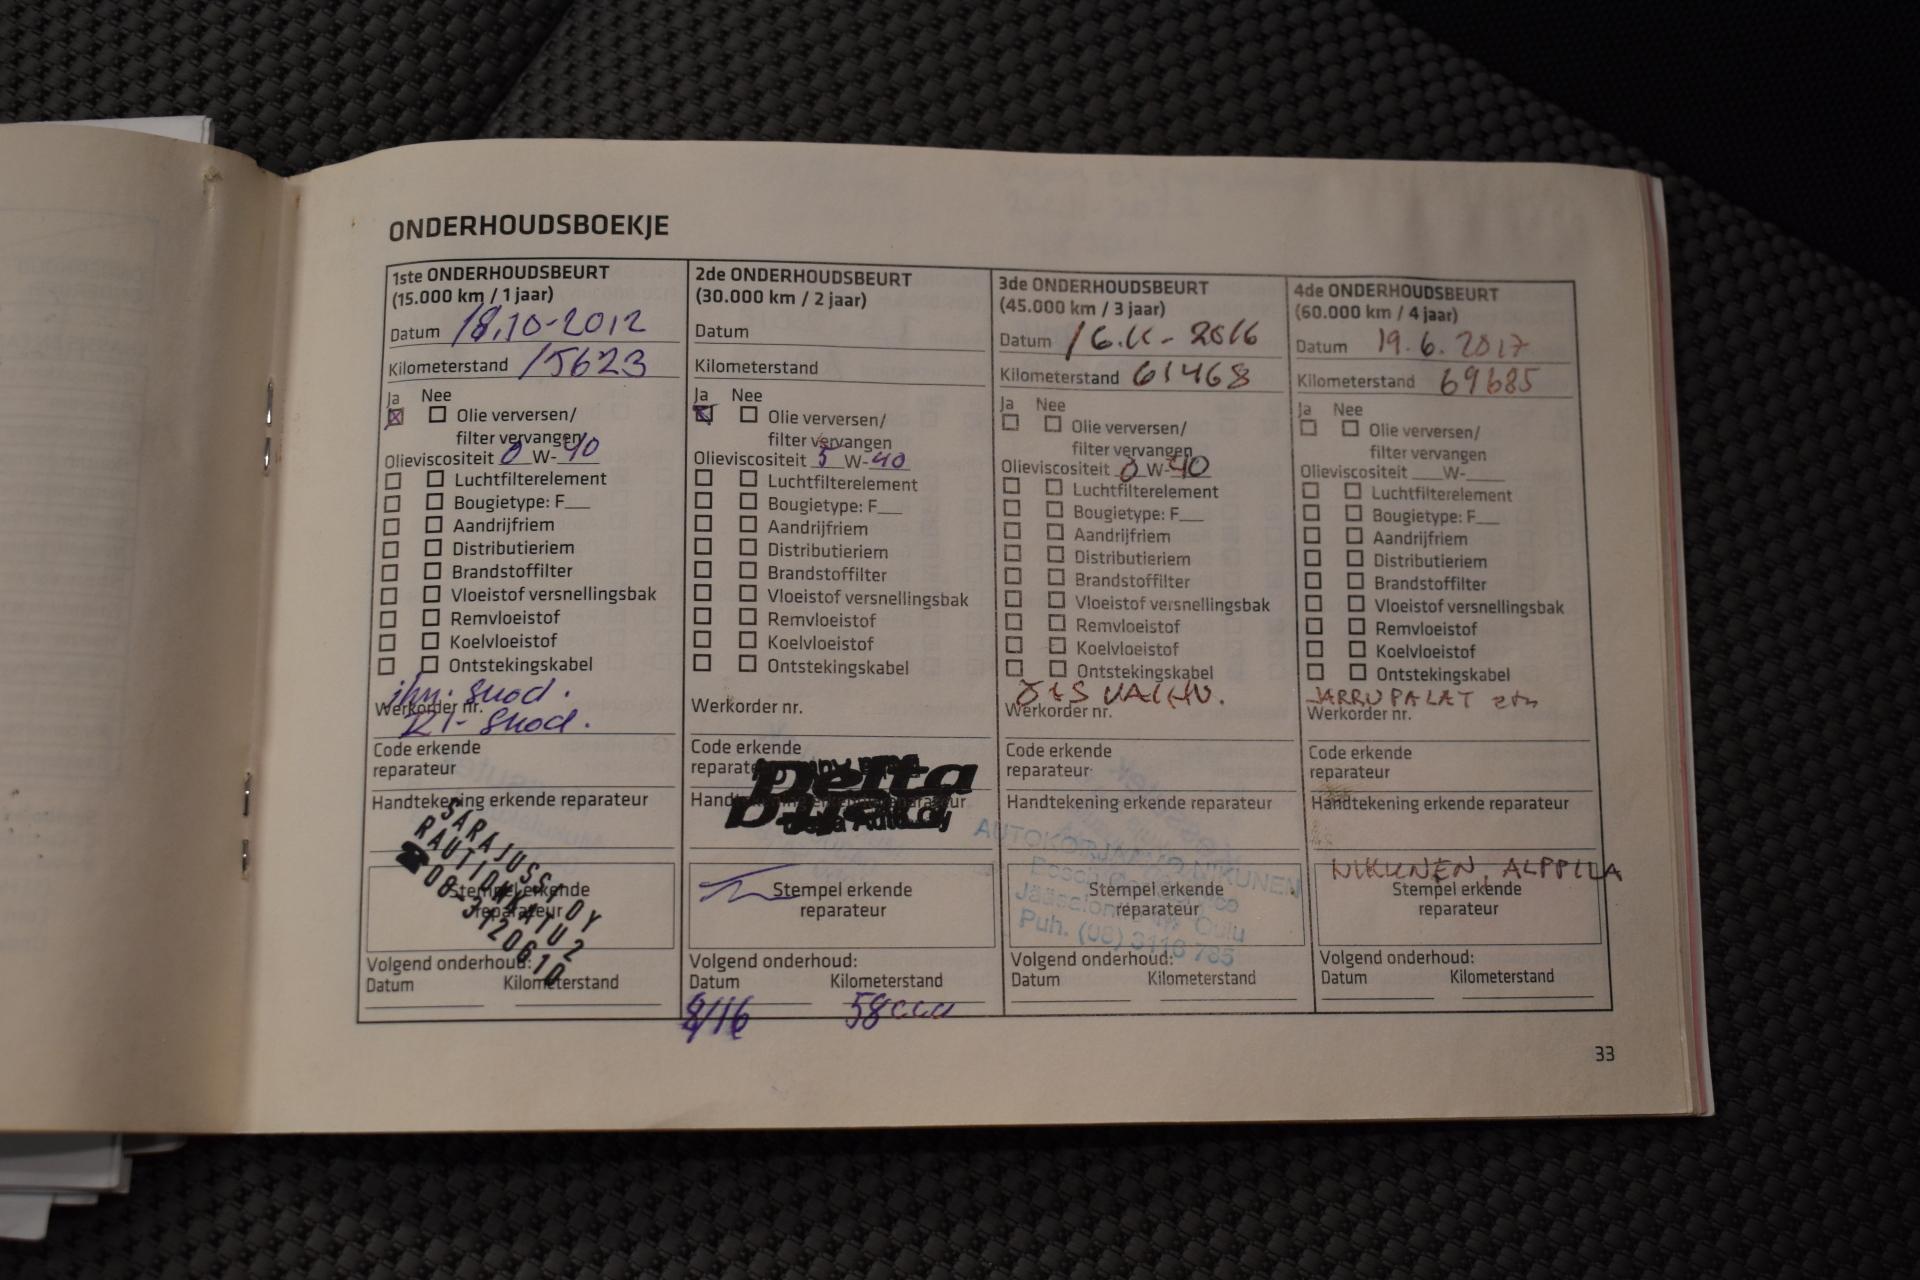 ONDERHOUDSBOEKJE
1ste ONDERHOUDSBEURT
(15.000 km / 1 jaar)
Datum 18.10-2012
Kilometerstand 15623
Ja Nee
Olie verversen/
filter vervangen
Olieviscositeit 0 W-40
Luchtfilterelement
Bougietype: F__
Aandrijfriem
Distributieriem
Brandstoffilter
Vloeistof versnellingsbak
Remvloeistof
Koelvloeistof
Ontstekingskabel
Werkorder nr.
Code erkende
reparateur
Handtekening erkende reparateur
SARAJUSSI OY
RAUTIONKATU 2
☎ 08-3120610
Stempel erkende
reparateur
Volgend onderhoud:
Datum Kilometerstand
2de ONDERHOUDSBEURT
(30.000 km / 2 jaar)
Datum
Kilometerstand
Ja Nee
Olie verversen/
filter vervangen
Olieviscositeit 5 W-40
Luchtfilterelement
Bougietype: F__
Aandrijfriem
Distributieriem
Brandstoffilter
Vloeistof versnellingsbak
Remvloeistof
Koelvloeistof
Ontstekingskabel
Werkorder nr.
Code erkende
reparateur
Delta
Handtekening erkende reparateur
Delta Auto Oy
Stempel erkende
reparateur
Volgend onderhoud:
Datum Kilometerstand
8/16
3de ONDERHOUDSBEURT
(45.000 km / 3 jaar)
Datum 16.11-2016
Kilometerstand 61468
Ja Nee
Olie verversen/
filter vervangen
Olieviscositeit 0 W-40
Luchtfilterelement
Bougietype: F__
Aandrijfriem
Distributieriem
Brandstoffilter
Vloeistof versnellingsbak
Remvloeistof
Koelvloeistof
Ontstekingskabel
Werkorder nr.
Code erkende
reparateur
Handtekening erkende reparateur
AUTOKORJAAMO NIKUNEN
Stempel erkende
reparateur
Oulu
Puh. (08) 3116 785
Volgend onderhoud:
Datum Kilometerstand
4de ONDERHOUDSBEURT
(60.000 km / 4 jaar)
Datum 19.6.2017
Kilometerstand 69685
Ja Nee
Olie verversen/
filter vervangen
Olieviscositeit ___W-___
Luchtfilterelement
Bougietype: F__
Aandrijfriem
Distributieriem
Brandstoffilter
Vloeistof versnellingsbak
Remvloeistof
Koelvloeistof
Ontstekingskabel
JARRUPALAT etu
Werkorder nr.
Code erkende
reparateur
Handtekening erkende reparateur
NIKUNEN, ALPPILA
Stempel erkende
reparateur
Volgend onderhoud:
Datum Kilometerstand
33